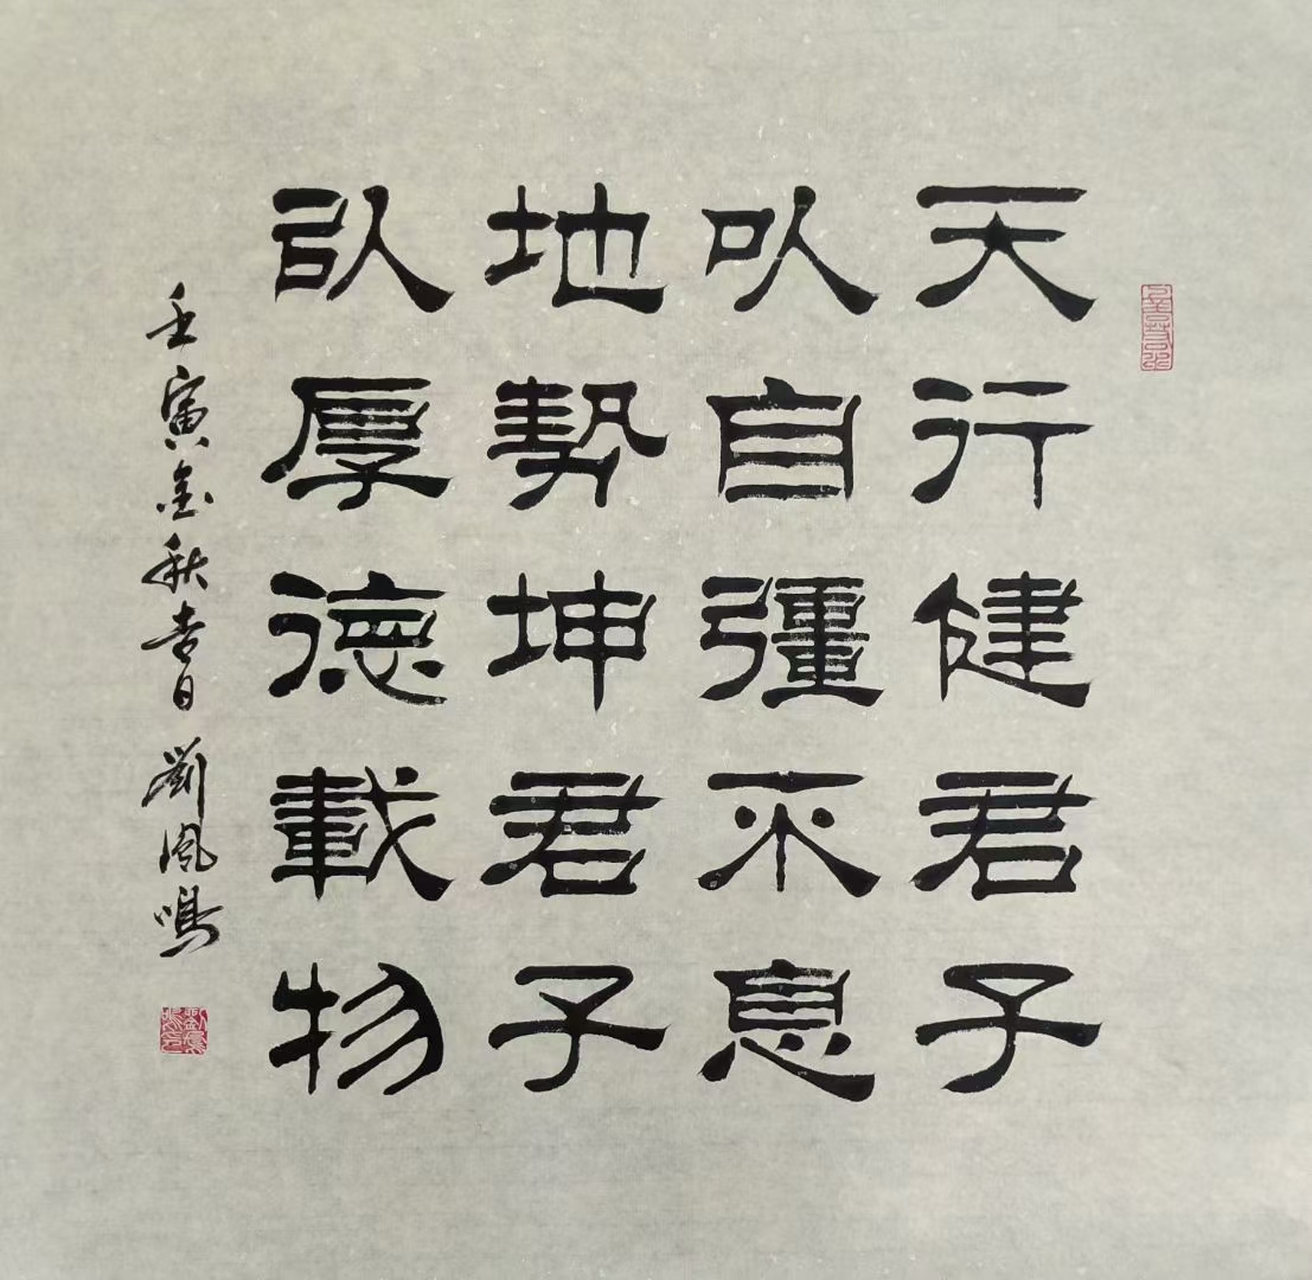 天行健君子
以自彊不息
地勢坤君子
以厚德載物
壬寅金秋吉日 劉鳳鳴